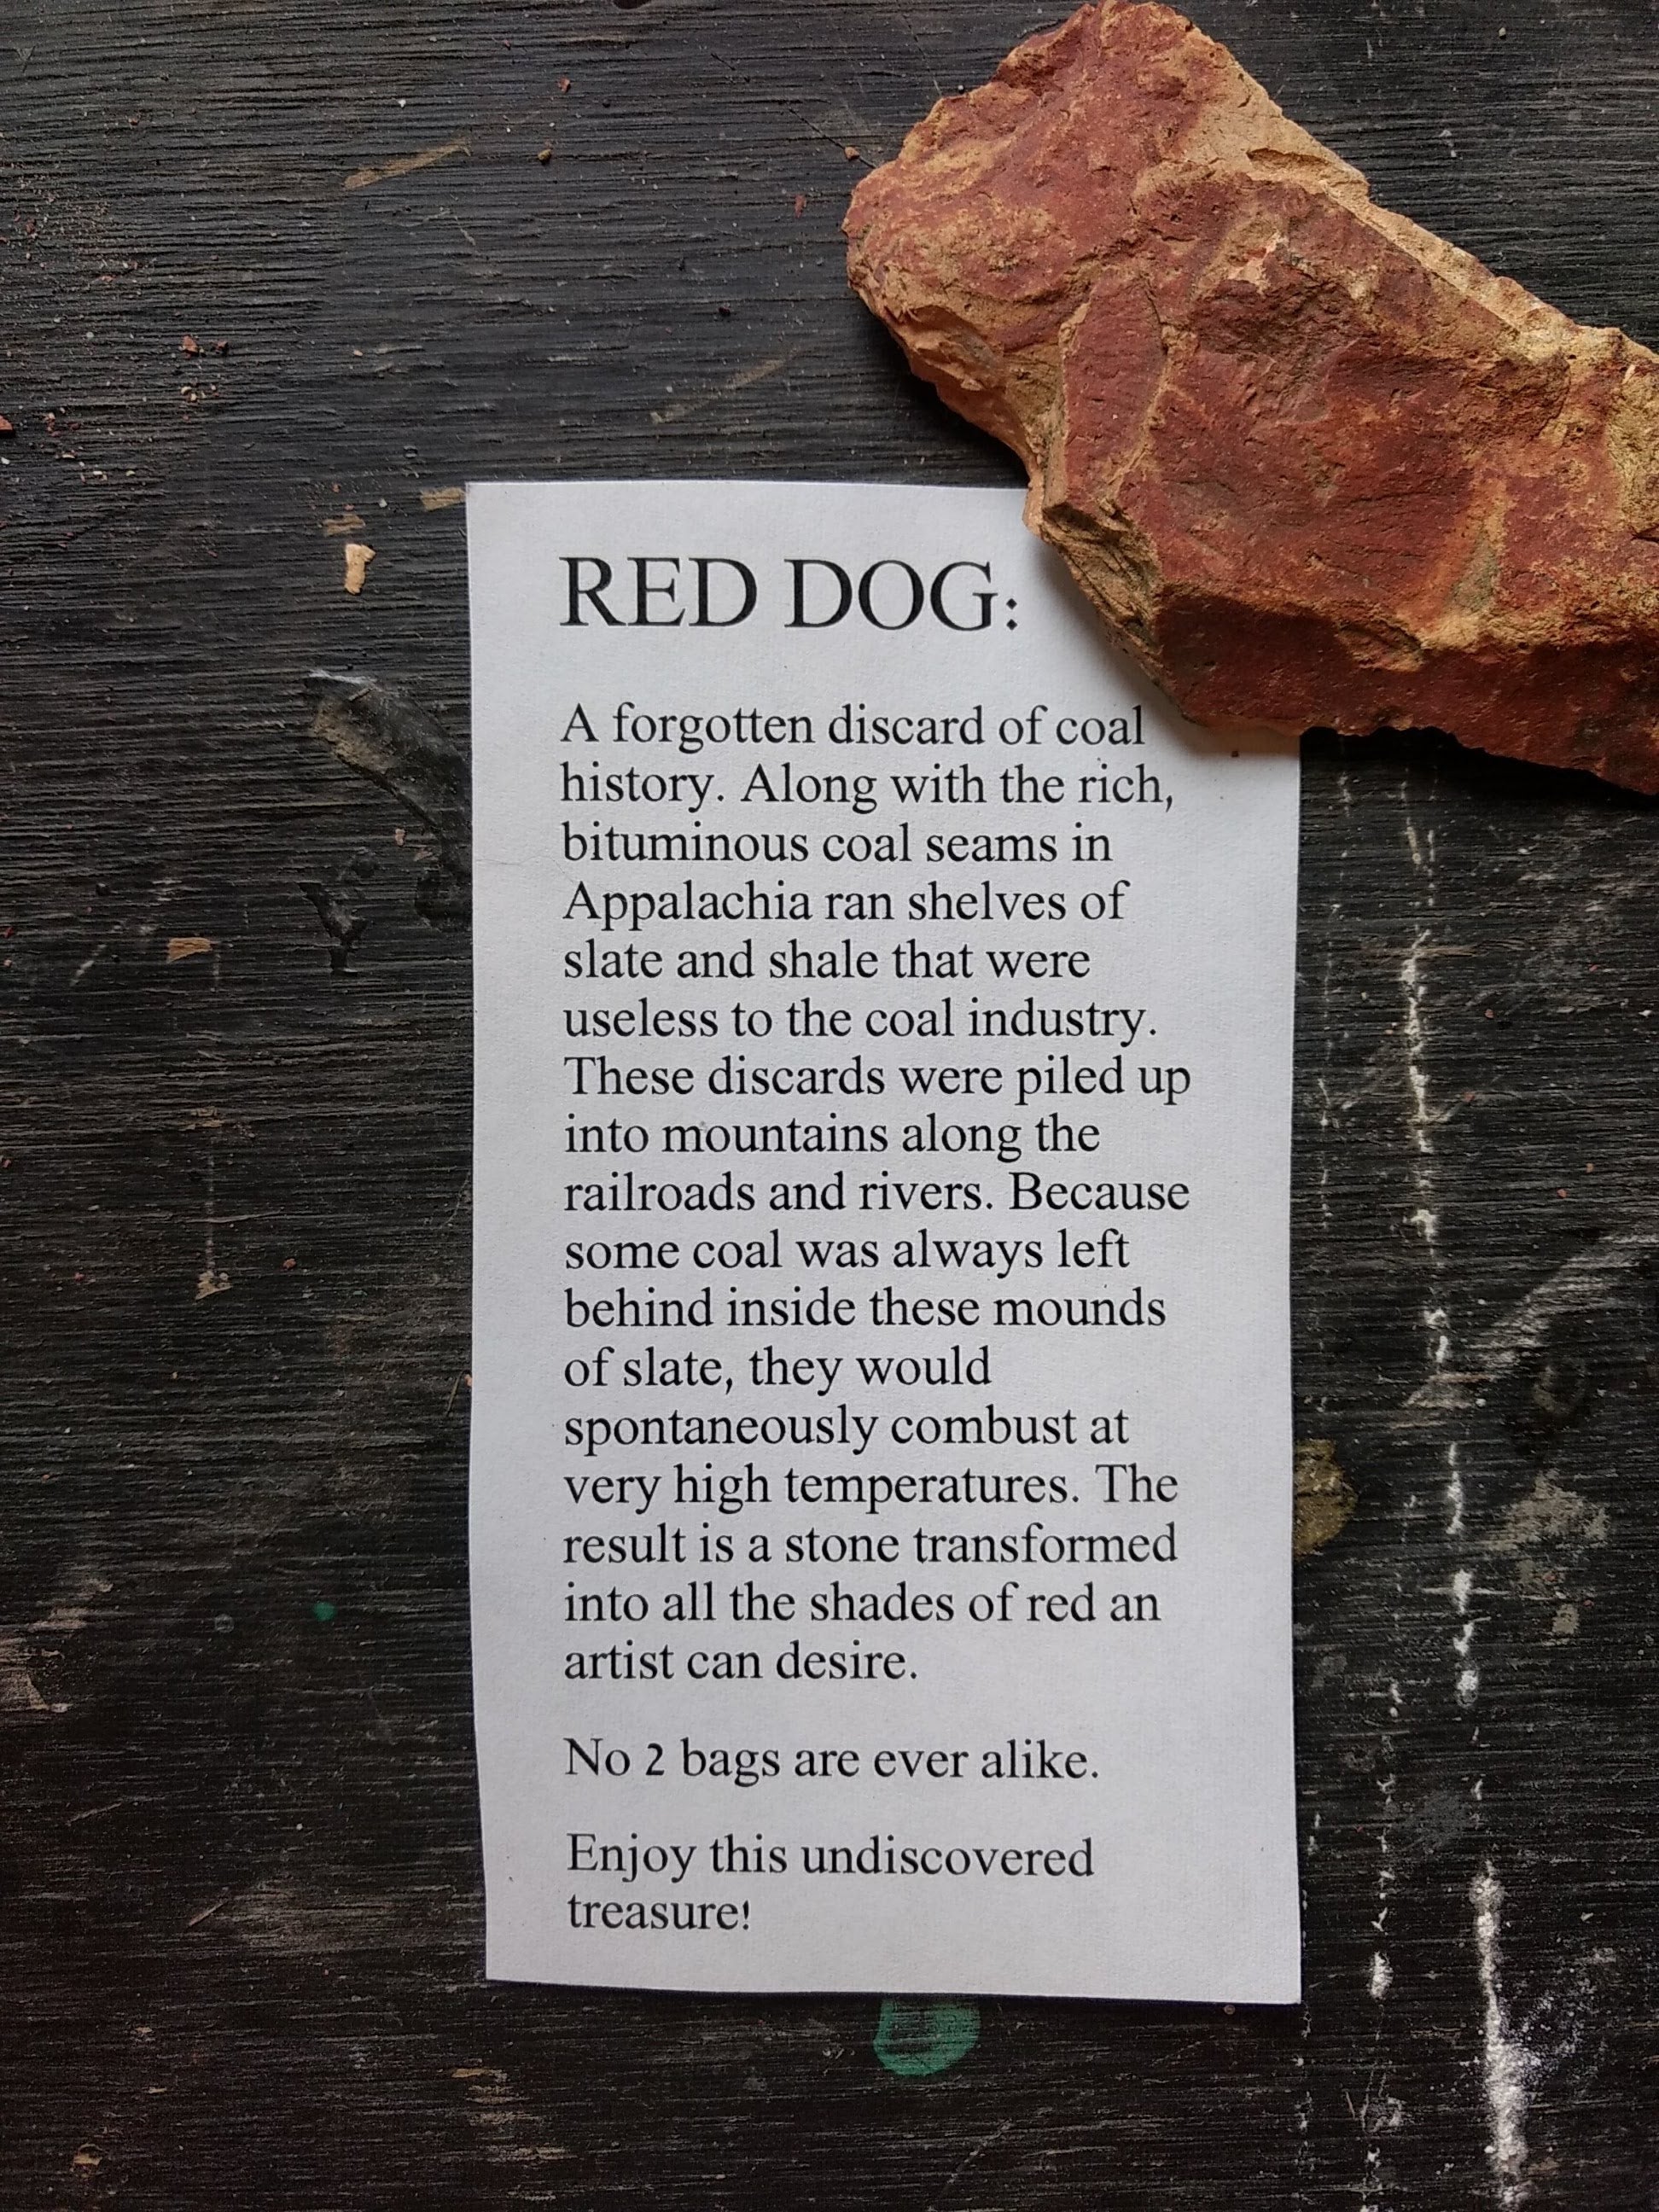 RED DOG:
A forgotten discard of coal
history. Along with the rich,
bituminous coal seams in
Appalachia ran shelves of
slate and shale that were
useless to the coal industry.
These discards were piled up
into mountains along the
railroads and rivers. Because
some coal was always left
behind inside these mounds
of slate, they would
spontaneously combust at
very high temperatures. The
result is a stone transformed
into all the shades of red an
artist can desire.
No 2 bags are ever alike.
Enjoy this undiscovered
treasure!